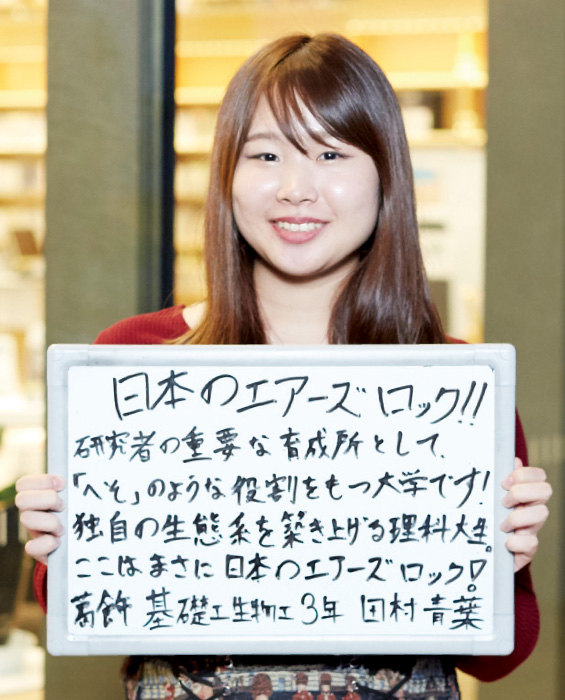 日本のエアーズロック!!
研究者の重要な育成所として、
「へそ」のような役割をもつ大学です!
独自の生態系を築き上げる理科大生。
ここはまさに日本のエアーズロック!
葛飾 基礎工生物工 3年 田村 青葉